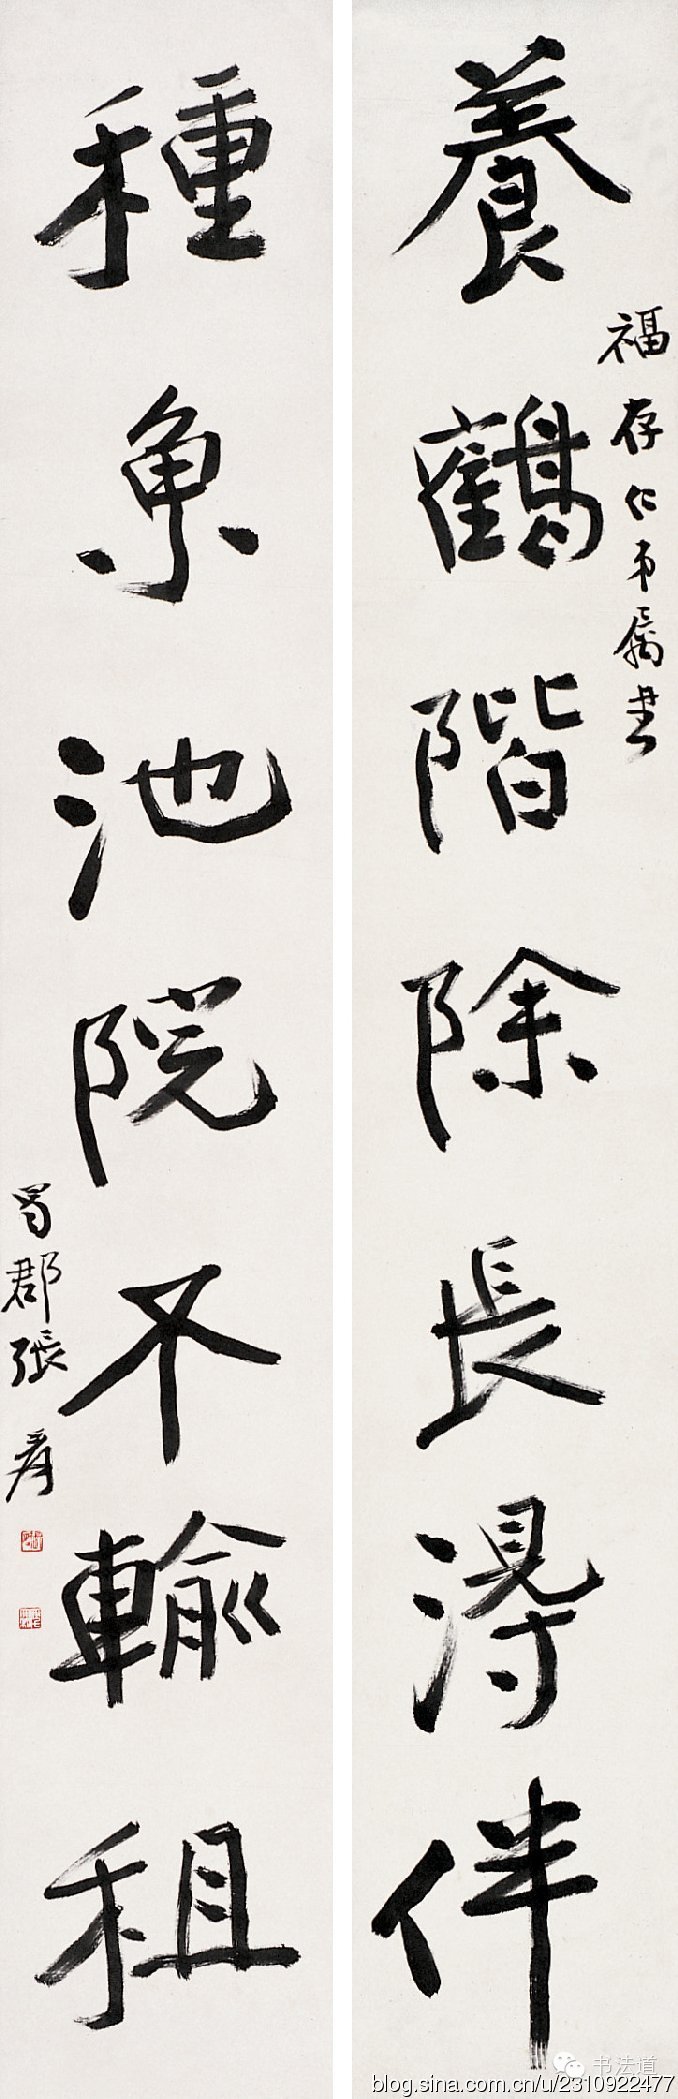 養鶴階除長得伴
福存仁弟属書
種魚池院不輸租
蜀郡張爰
书法道
blog.sina.com.cn/u/2310922477